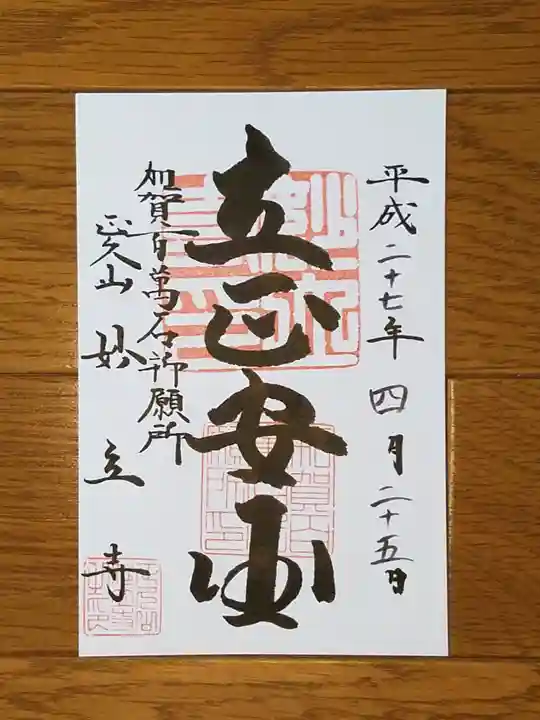 平成二十七年四月二十五日
立正安国
加賀百萬石祈願所
正久山 妙立寺